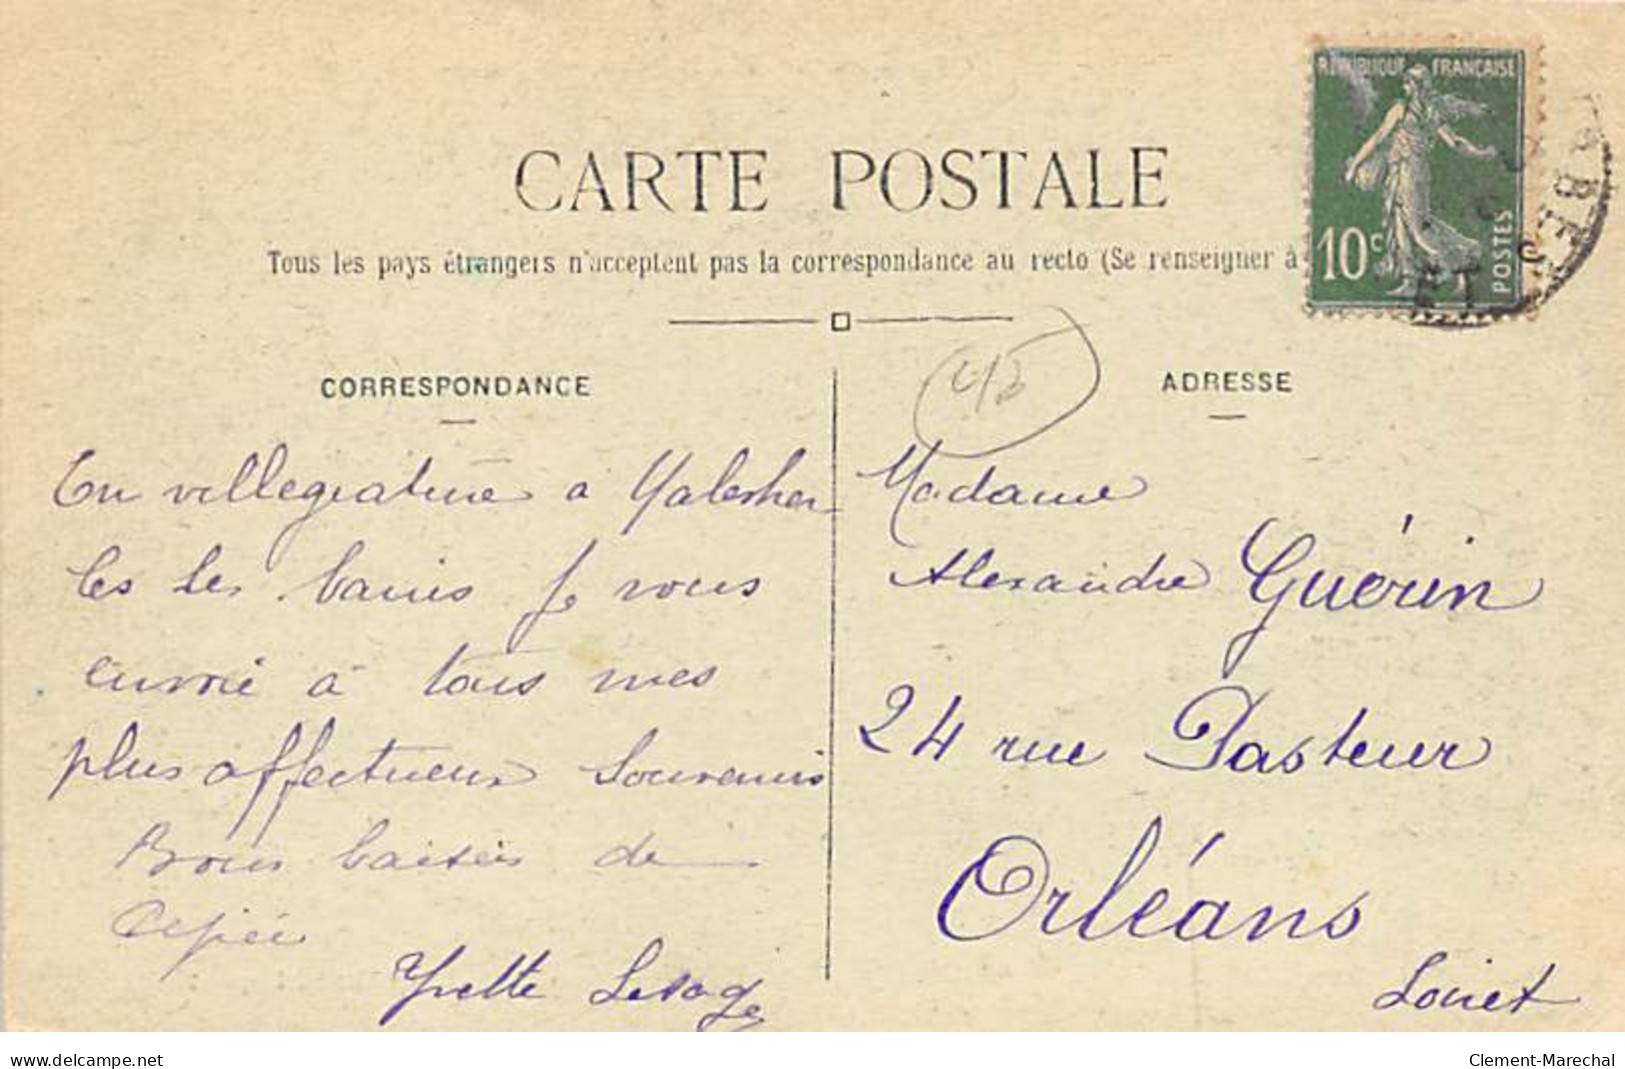 RÉPUBLIQUE FRANÇAISE
10c POSTES
CARTE POSTALE
Tous les pays étrangers n'acceptent pas la correspondance au recto (Se renseigner à
45
CORRESPONDANCE
En villegiature a Malesher
bes les bains je vous
envoie à tous mes
plus affectueux souvenirs
Bons baisers de
Yvette Lesage
ADRESSE
Madame
Alexandre Guérin
24 rue Pasteur
Orléans
Loiret
www.delcampe.net
Clement-Marechal